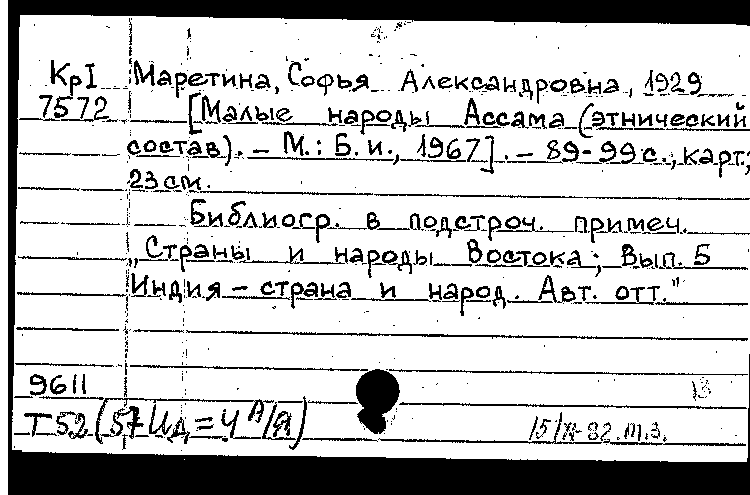 КрI Маретина, Софья Александровна, 1929
7572 [Малые народы Ассама (этнический
состав). – М.: Б.и., 1967]. – 89-99 с., карт;
23 см.
Библиогр. в подстроч. примеч.
„Страны и народы Востока; Вып. 5
Индия – страна и народ. Авт. отт."
9611
13
Т52(57Ид=4А/Я)
82.т.з.